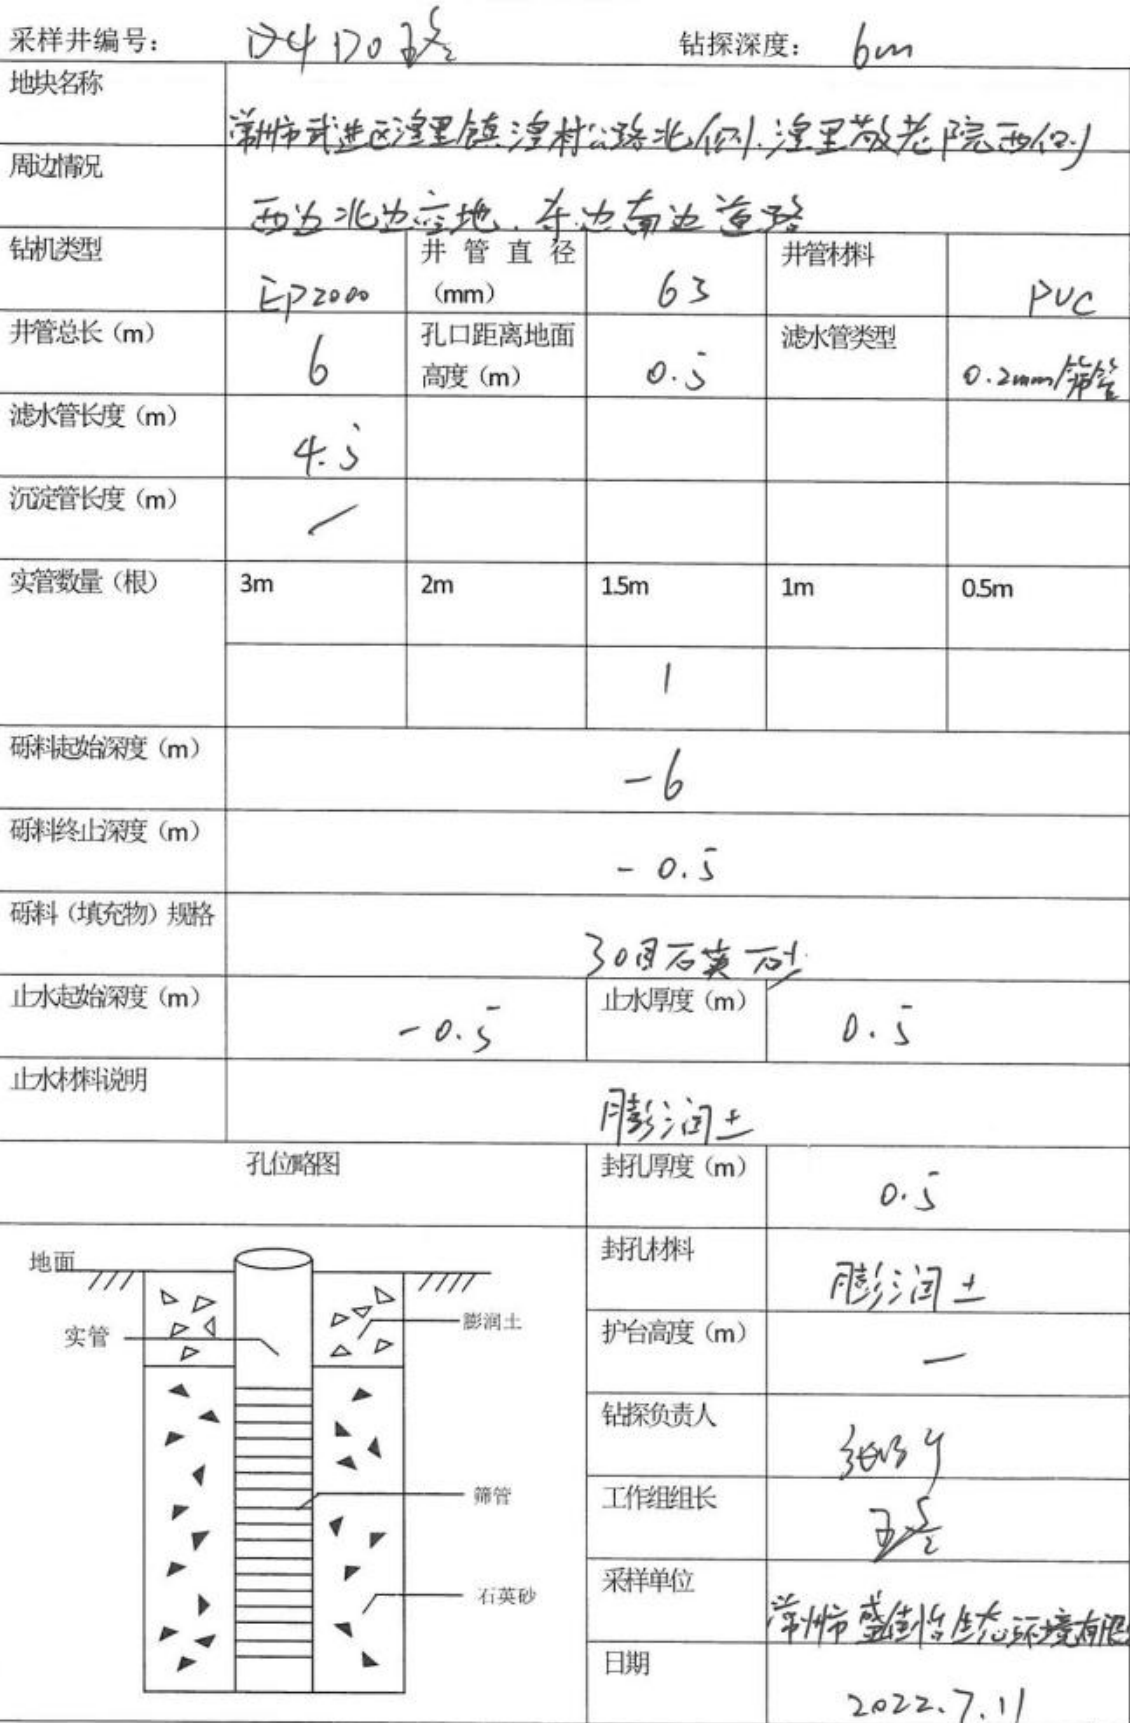 采样井编号： 钻探深度： 6m
地块名称 常州市武进区湟里镇湟村公路北侧、湟里敬老院西侧
周边情况 西边北边空地、东边南边道路
钻机类型 EP2000 井管直径（mm） 63 井管材料 PVC
井管总长（m） 6 孔口距离地面高度（m） 0.5 滤水管类型 0.2mm筛管
滤水管长度（m） 4.5
沉淀管长度（m） /
实管数量（根） 3m 2m 1.5m 1m 0.5m
1
砾料起始深度（m） -6
砾料终止深度（m） -0.5
砾料（填充物）规格 30目石英砂
止水起始深度（m） -0.5 止水厚度（m） 0.5
止水材料说明 膨润土
孔位略图 封孔厚度（m） 0.5
封孔材料 膨润土
护台高度（m） —
钻探负责人
工作组组长
采样单位 常州市盛 生态环境有限
日期 2022.7.11
地面
实管
膨润土
筛管
石英砂